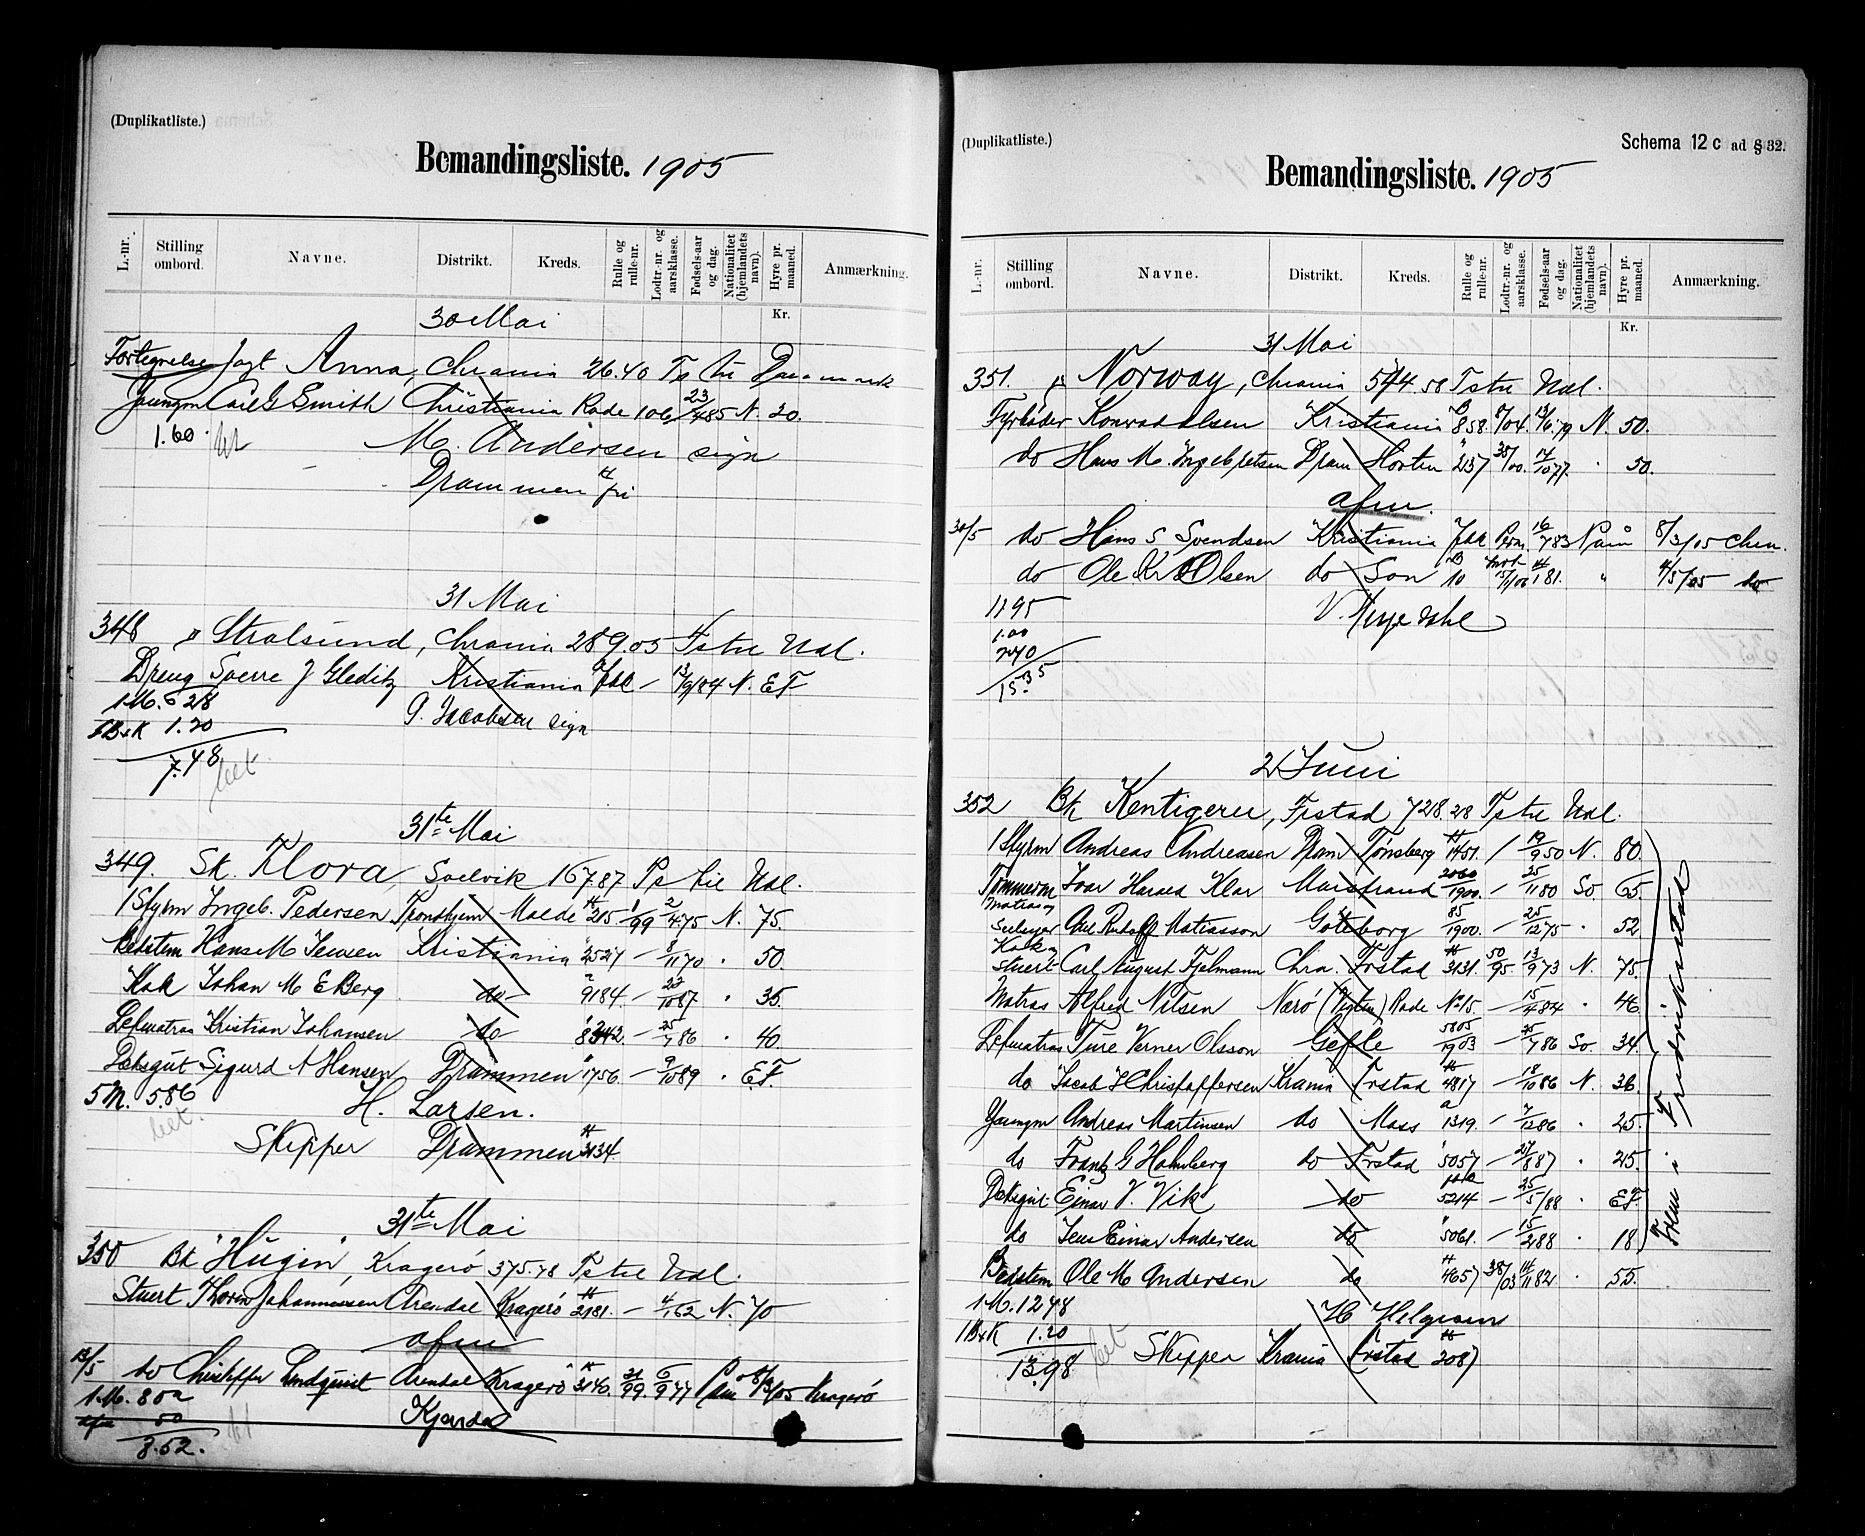 (Duplikatliste.)
Bemandingsliste. 1905
L.-nr. Stilling ombord. Navne. Distrikt. Kreds. Rulle og rulle-nr. Lodtr.-nr. og aarsklasse. Fødsels-aar og dag. Nationalitet (hjemlandets navn). Hyre pr. maaned. Anmærkning.
Kr.
30 Mai
Jagt Anna, Chrania 26.40 Ts til Danmark
Youngm Carl G Smith Christiania Rode 106 23/4 85 N. 20.
1.60
M. Andersen sign
Drammen
31 Mai
348 " Stralsund, Chrania 289.05 Ts til Udl.
Dreng Sverre J Gleditz Kristiania fdl — 13/9/84 N. EF
1 M. 628
1 B&K 1.20
G. Jacobsen sign
7.48
31te Mai
349. Sk. Flora, Svelvik 167.87 Ts til Udl.
1 Styrm Ingeb. Pedersen Trondhjem Molde 215 1/99 2/4 75 N. 75.
Bedstem Hans M Jensen Kristiania 2527 — 8/11 70 " 50.
Kok Johan M E Berg do 9184 — 22/10 87 " 35.
Letmatros Kristian Johansen do 8342 — 25/7 86 " 40.
Dæksgut Sigurd A Hansen Drammen 1756 — 9/10 89 " E.F.
5 M. 5.86
H. Larsen.
Skipper Drammen 3134
31te Mai
350 Bk "Hugin", Kragerö 375.78 Ts til Udl.
Stuert Thorvald Johannessen Arendal Kragerö 2181 — 4/1 62 N. 70
afm
13/5 do Christoffer Lindquist Arendal Kragerö 3140. 31/99. 6/9 77 Kragerö
1 M. 802
50
8.52.
(Duplikatliste.)
Schema 12 c ad § 32.
Bemandingsliste. 1905
L.-nr. Stilling ombord. Navne. Distrikt. Kreds. Rulle og rulle-nr. Lodtr.-nr. og aarsklasse. Fødsels-aar og dag. Nationalitet (hjemlandets navn). Hyre pr. maaned. Anmærkning.
Kr.
31 Mai
351. " Norway, Chrania 544.58 Ts til Udl.
Fyrbøder Konrad Olsen Kristiania 858. N. 50.
do Hans M. Ingebretsen Dram Horten 237 35/00. 14/10 77. " 50.
afm.
30/5 do Hans S Svendsen Kristiania fdl 16/7 83 8/3/05 Chra.
do Ole Kr Olsen do Son 10 14/1 81. " 4/5/05 do
11.95
1.00
2.40
15.35
2 Juni
352 Bk Kentigern, Frstad 728.28 Ts til Udl.
1 Styrm Andreas Andreasen Dram Tønsberg 1451. / 19/9 50 N. 80.
Tømmerm Ivar Harald Klar Marstrand 2060/1900. — 25/11 80 Sv. 65.
Matros og Seilmager Axel Rudolf Matiasson Göteborg 85/1900. — 25/12 75 " 52
Kok og Stuert Carl August Fjelmann Chra. Frstad 3131. 50/95. 13/9 73 N. 75.
Matros Alfred Nilsen Nærö (Vigten) Rode No 15. — 15/4 84 " 46
Letmatros Ture Verner Olsson Gefle 5805/1903 — 25/7 86 Sv. 34
do Jacob J Christoffersen Krania Frstad 4817 — 18/10 86 N. 36.
Youngm Andreas Martinsen do Moss 1319. — 7/12 86 " 25.
do Frantz G Holmberg do Frstad 5057 — 27/8 87 " 25.
Dæksgut Einar V. Vik do 5214 — 25/5/88 " EF.
do Jens Einar Andersen do 5061. — 15/2 88 " 18
Bedstem Ole M Andersen do 4657 38/03 14/11 82 " 55.
Frem i Fredrikstad
1 M. 12.78
1 B&K 1.20
13.98
Skipper Krania Frstad 2087